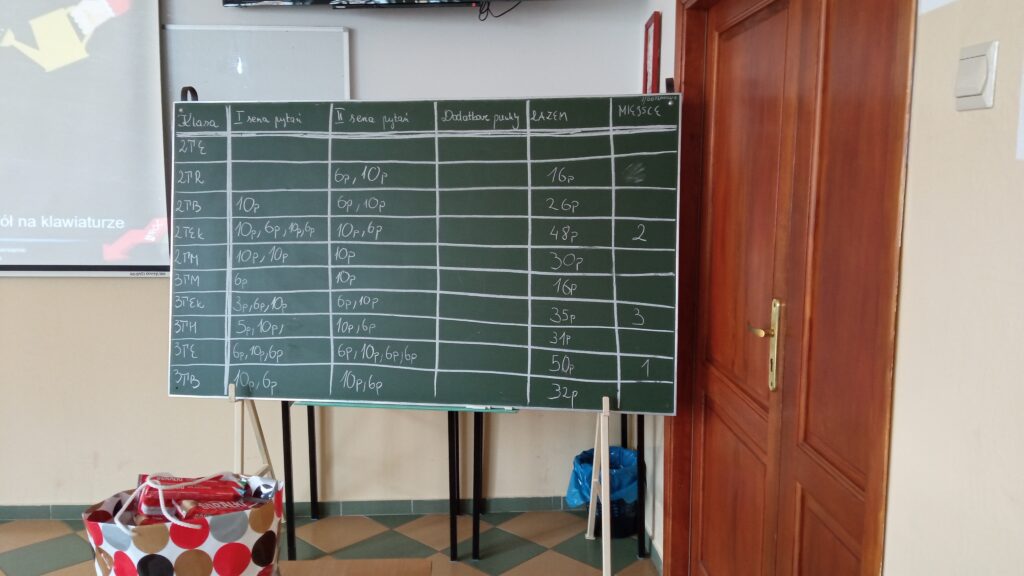 ól na klawiaturze
Klasa I seria pytań II seria pytań Dodatkowe punkty RAZEM MIEJSCE
2TE
2TR 6p, 10p 16p
2TB 10p 6p, 10p 26p
2TEk 10p, 6p, 10p, 6p 10p, 6p 48p 2
2TM 10p, 10p 10p 30p
3TM 6p 10p 16p
3TEk 3p, 6p, 10p 6p, 10p 35p 3
3TH 5p, 10p, 10p, 6p 31p
3TE 6p, 10p, 6p 6p, 10p, 6p, 6p 50p 1
3TB 10p, 6p 10p, 6p 32p